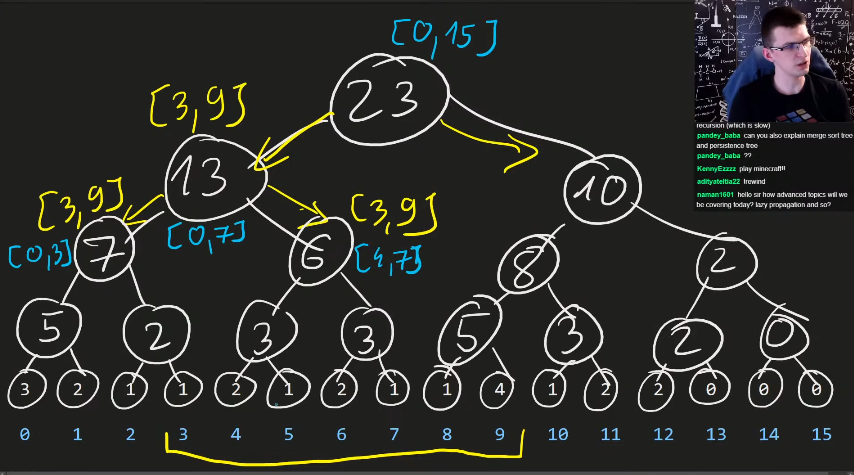 [0,15]
23
[3,9]
13
10
[3,9]
[3,9]
[0,7]
[0,3]
7
6
[4,7]
8
2
5
2
3
3
5
3
2
0
3 2 1 1 2 1 2 1 1 4 1 2 2 0 0 0
0 1 2 3 4 5 6 7 8 9 10 11 12 13 14 15
recursion (which is slow)
pandey_baba can you also explain merge sort tree
and persistence tree
pandey_baba ??
KennyEzzzz play minecraft!!!
adityateltia22 !rewind
naman1601 hello sr how advanced topics will we
be covering today? lazy propagation and so?